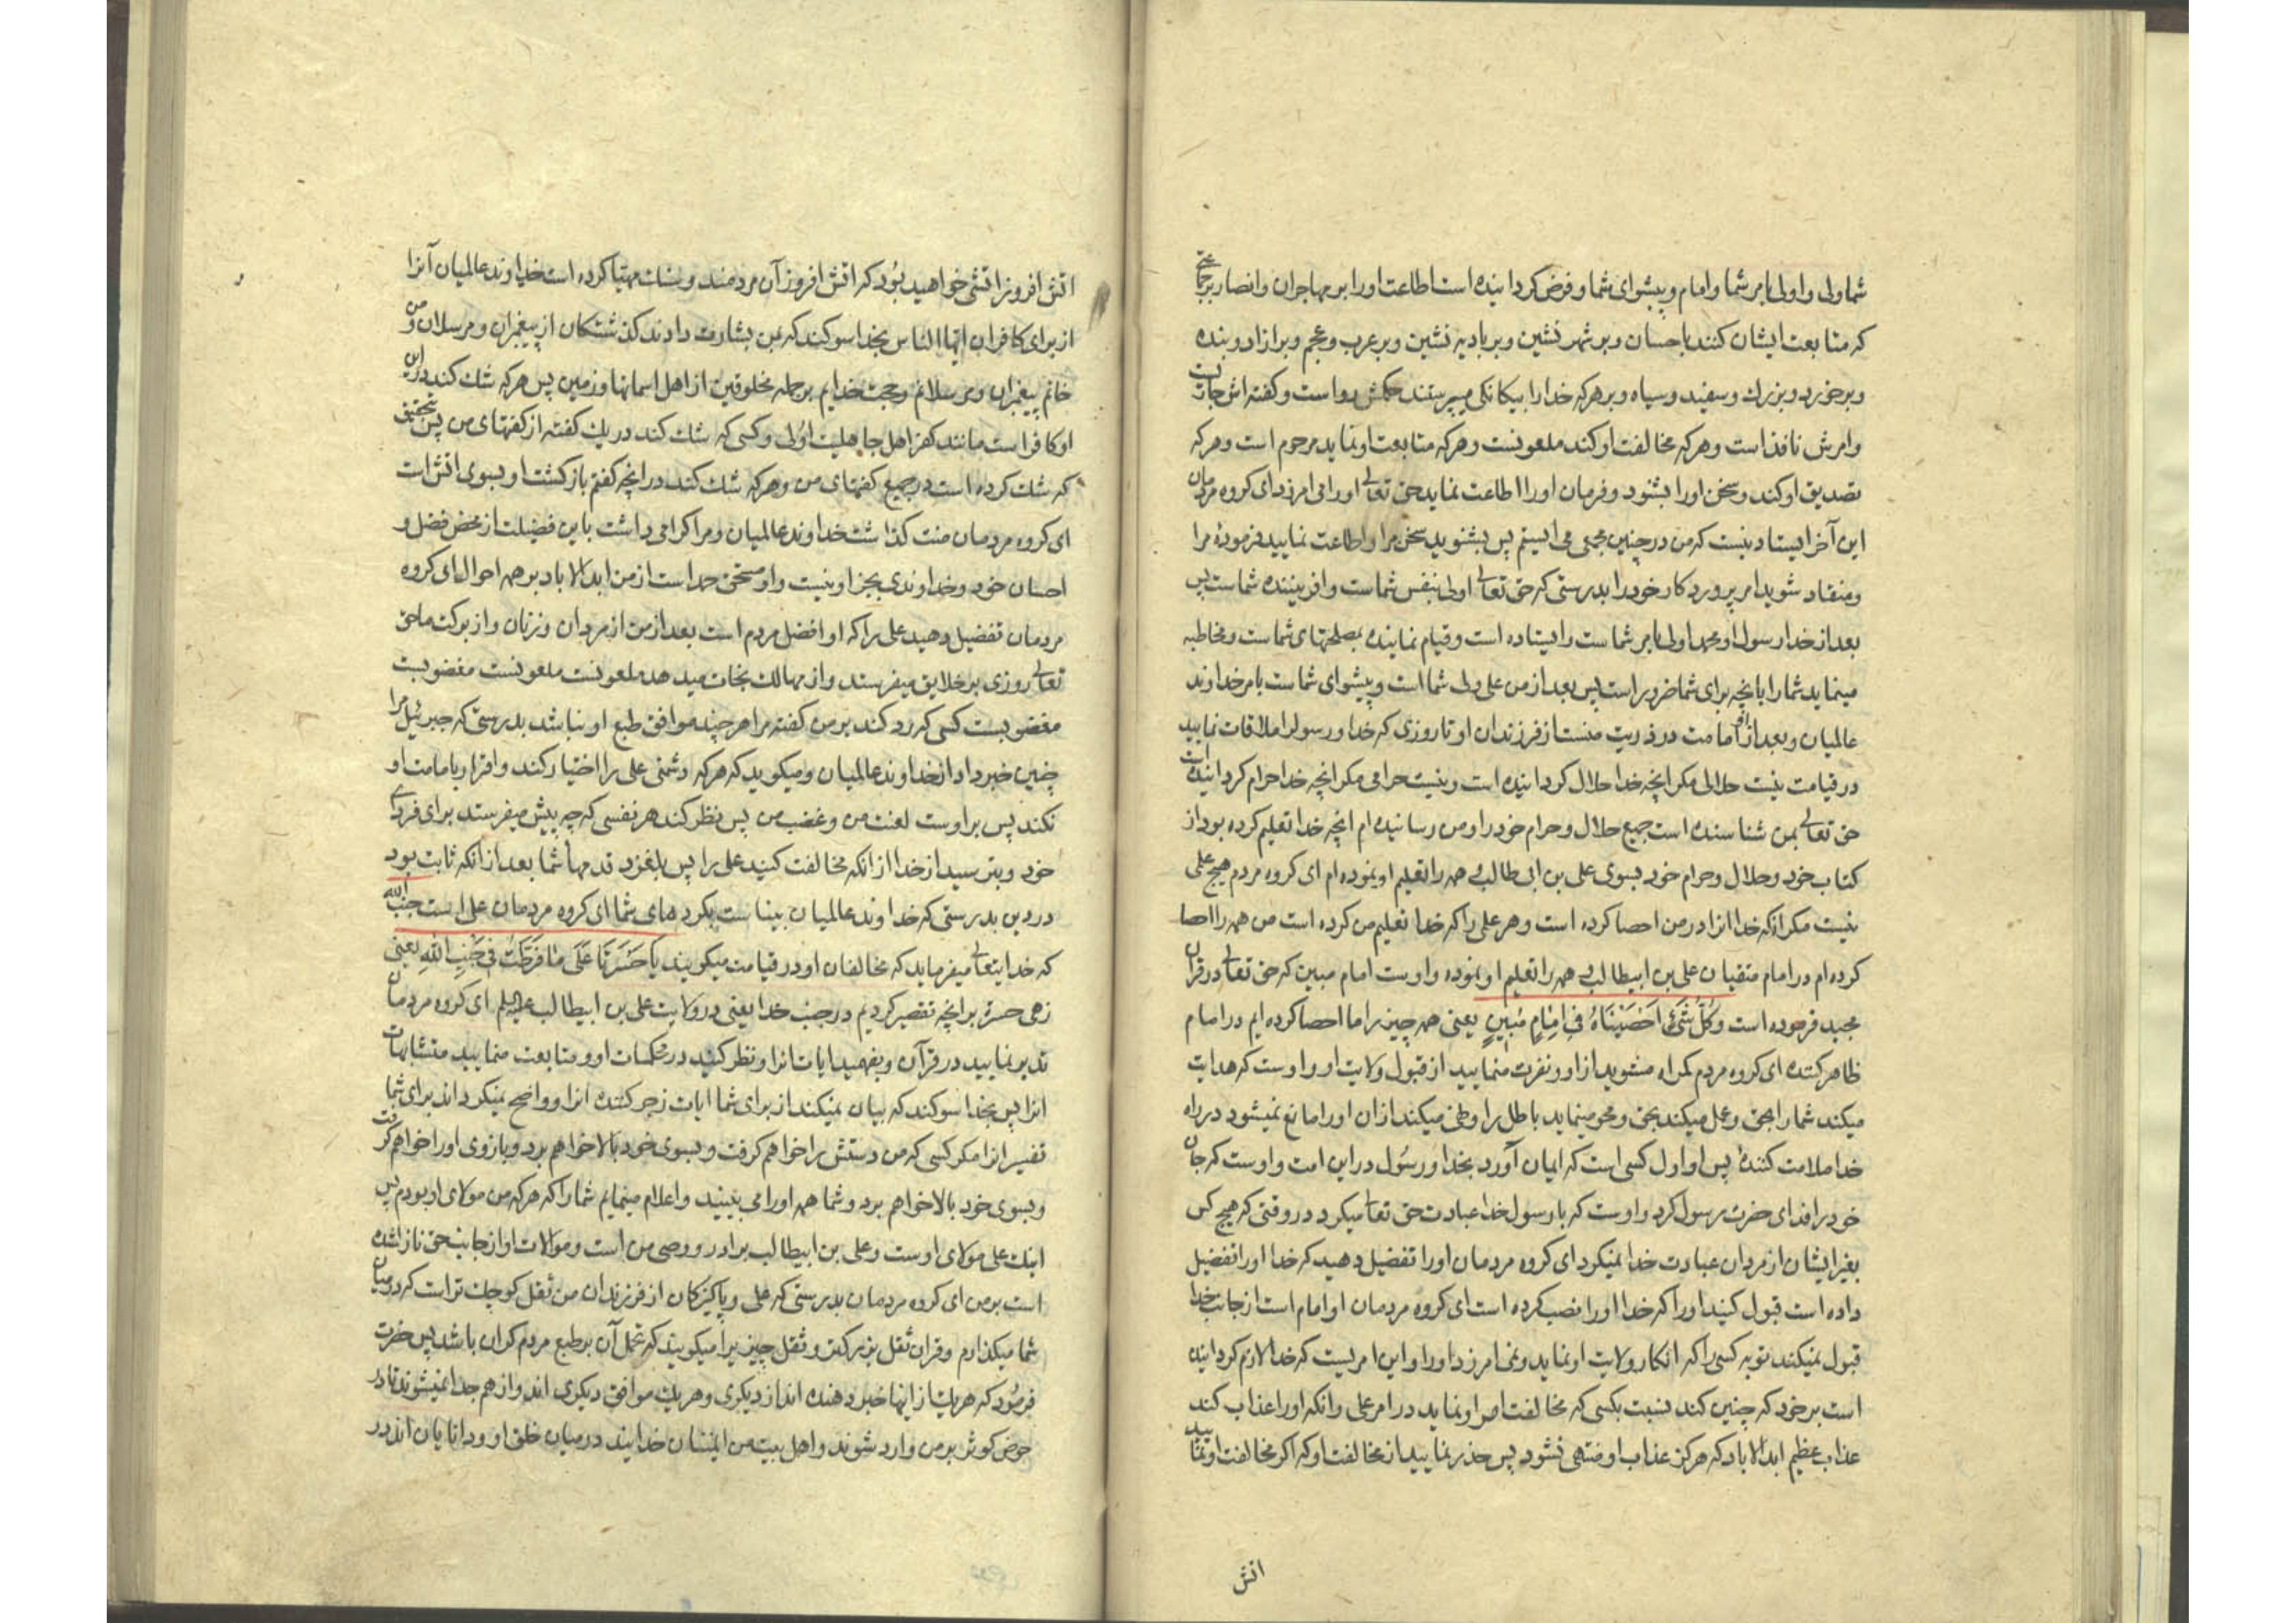 شما ولی و اولی بامر شما و امام و پیشوای شما و فرض کردانیده است اطاعت او را بر مهاجران و انصار و بر جماعتی
که متابعت ایشان کنند باحسان و بر شهر نشین و بر بادیه نشین و بر عرب و عجم و بر ازاد و بنده
و بر خورد و بزرك و سفید و سیاه و بر هر که خدا را بیکانکی میپرستند حکمش رواست و کفته اش جاریست
و امرش نافذ است و هر که مخالفت او کند ملعونست و هر که متابعت او نماید مرحوم است و هر که
تصدیق او کند و سخن او را بشنود و فرمان او را اطاعت نماید حق تعالی او را می امرزد ای کروه مردمان
این آخر ایستادنیست که من در چنین مجمعی می ایستم پس بشنوید سخن مرا و اطاعت نمایید فرمودهٔ مرا
و منقاد شوید امر پروردکار خود را بدرستی که حق تعالی اولی بنفس شماست و افریننده شماست پس
بعد از خدا رسول او محمد اولی بامر شماست را ایستاده است و قیام نماینده بمصلحتهای شماست و مخاطبه
مینماید شما را بانچه برای شما ضرور است پس بعد از من علی ولی شما است و پیشوای شماست بامر خداوند
عالمیان و بعد از او امامت در ذریت منست از فرزندان او تا روزی که خدا و رسول را ملاقات نمایید
در قیامت نیست حلالی مکر انچه خدا حلال کردانیده است و نیست حرامی مکر انچه خدا حرام کردانیده است
حق تعالی بمن شناسنده است جمیع حلال و حرام خود را و من رسانیده ام انچه خدا تعلیم کرده بود از
کتاب خود و حلال و حرام خود بسوی علی بن ابی طالب و همه را تعلیم او نموده ام ای کروه مردم هیچ علمی
نیست مکر انکه خدا انرا در من احصا کرده است و هر علمی را که خدا تعلیم من کرده است من همه را احصا
کرده ام در امام متقیان علی بن ابیطالب و همه را تعلیم او نموده و اوست امام مبین که حق تعالی در قران
مجید فرموده است وَكُلَّ شَيْءٍ اَحْصَيْنَاهُ فِي اِمَامٍ مُبِينٍ یعنی همه چیز را ما احصا کرده ایم در امام
ظاهر کننده ای کروه مردم کمراه مشوید از او و نفرت منمایید از قبول ولایت او و اوست که هدایت
میکند شما را بحق و عمل میکند بحق و محو مینماید باطل را و نهی میکند از ان او را مانع نمیشود در راه
خدا ملامت کننده پس او اول کسی است که ایمان آورد بخدا و رسول در این امت و اوست که جان
خود را فدای حضرت رسول کرد و اوست که با رسول خدا عبادت حق تعالی میکرد در وقتی که هیچ کس
بغیر ایشان از مردان عبادت خدا نمیکرد ای کروه مردمان او را تفضیل دهید که خدا او را تفضیل
داده است قبول کنید او را که خدا او را نصب کرده است ای کروه مردمان او امام است از جانب خدا
قبول نمیکند توبه کسی را که انکار ولایت او نماید و نمی امرزد او را و این امریست که خدا لازم کردانیده
است بر خود که چنین کند نسبت بکسی که مخالفت امر او نماید در امر علی و انکه او را عذاب کند
عذاب عظیم ابد الاباد که هرکز عذاب او منتهی نشود پس حذر نمایید از مخالفت او که اکر مخالفت او نمایید
اتش
اتش افروز اتشی خواهید بود که اتش افروز آن مردمند و سنك مهیا کرده است خداوند عالمیان آنرا
از برای کافران ایها الناس بخدا سوکند که بمن بشارت دادند کذشتکان از پیغمبران و مرسلان و من
خاتم پیغمبران و مرسلانم و حجت خدایم بر جمله مخلوقین از اهل اسمانها و زمین پس هر که شك کند در این
او کافر است مانند کفر اهل جاهلیت اولی و کسی که شك کند در یك کفته از کفتهای من پس بتحقیق
که شك کرده است در جمیع کفتهای من و هر که شك کند در انچه کفتم بازکشت او بسوی اتش است
ای کروه مردمان منت کذاشت خداوند عالمیان و مرا کرامی داشت باین فضیلت از محض فضل و
احسان خود و خداوندی بجز او نیست و او مستحق حمد است از من ابد الاباد بر همه احوال ای کروه
مردمان تفضیل دهید علی را که او افضل مردم است بعد از من از مردان و زنان و از برکت ما حق
تعالی روزی بر خلایق میفرستد و از مهالك نجات میدهد ملعونست ملعونست مغضوبست
مغضوبست کسی که رد کند بر من کفته مرا هر چند موافق طبع او نباشد بدرستی که جبرئیل مرا
چنین خبر داد از خداوند عالمیان و میکوید که هر که دشمنی علی را اختیار کند و اقرار بامامت او
نکند پس بر اوست لعنت من و غضب من پس نظر کند هر نفسی که چه پیش میفرستد برای فردای
خود و بترسید از خدا از انکه مخالفت کنید علی را پس بلغزد قدمهای شما بعد از انکه ثابت بود
در دین بدرستی که خداوند عالمیان بیناست بکردهای شما ای کروه مردمان علی است جنب الله
که خدایتعالی میفرماید که مخالفان او در قیامت میکویند يَا حَسْرَتَا عَلَى مَا فَرَّطْتُ فِي جَنْبِ اللهِ یعنی
زهی حسرت بر انچه تقصیر کردیم در جنب خدا یعنی در ولایت علی بن ابیطالب علیه السلم ای کروه مردمان
تدبر نمایید در قرآن و بفهمید ایات انرا و نظر کنید در محکمات او و متابعت منمایید متشابهات
انرا پس بخدا سوکند که بیان نمیکند از برای شما ایات زجر کننده انرا و واضح نمیکرداند برای شما
تفسیر انرا مکر کسی که من دستش را خواهم کرفت و بسوی خود بالا خواهم برد و بازوی او را خواهم کرفت
و بسوی خود بالا خواهم برد و شما همه او را می بینید و اعلام مینمایم شما را که هر که من مولای او بودم پس
اینك علی مولای اوست و علی بن ابیطالب برادر و وصی من است و موالات او از جانب حق نازل شده
است بر من ای کروه مردمان بدرستی که علی و پاکیزکان از فرزندان من ثقل کوچك تر است که در میان
شما میکذارم و قران ثقل بزرکتر و ثقل چیزیرا میکویند که تحمل آن بر طبع مردم کران باشد پس حضرت
فرمود که هر یك از اینها خبر دهنده اند از دیکری و هر یك موافق دیکری اند و از هم جدا نمیشوند تا در
حوض کوثر بر من وارد شوند و اهل بیت من امینان خدایند در میان خلق او و دانایان اند در